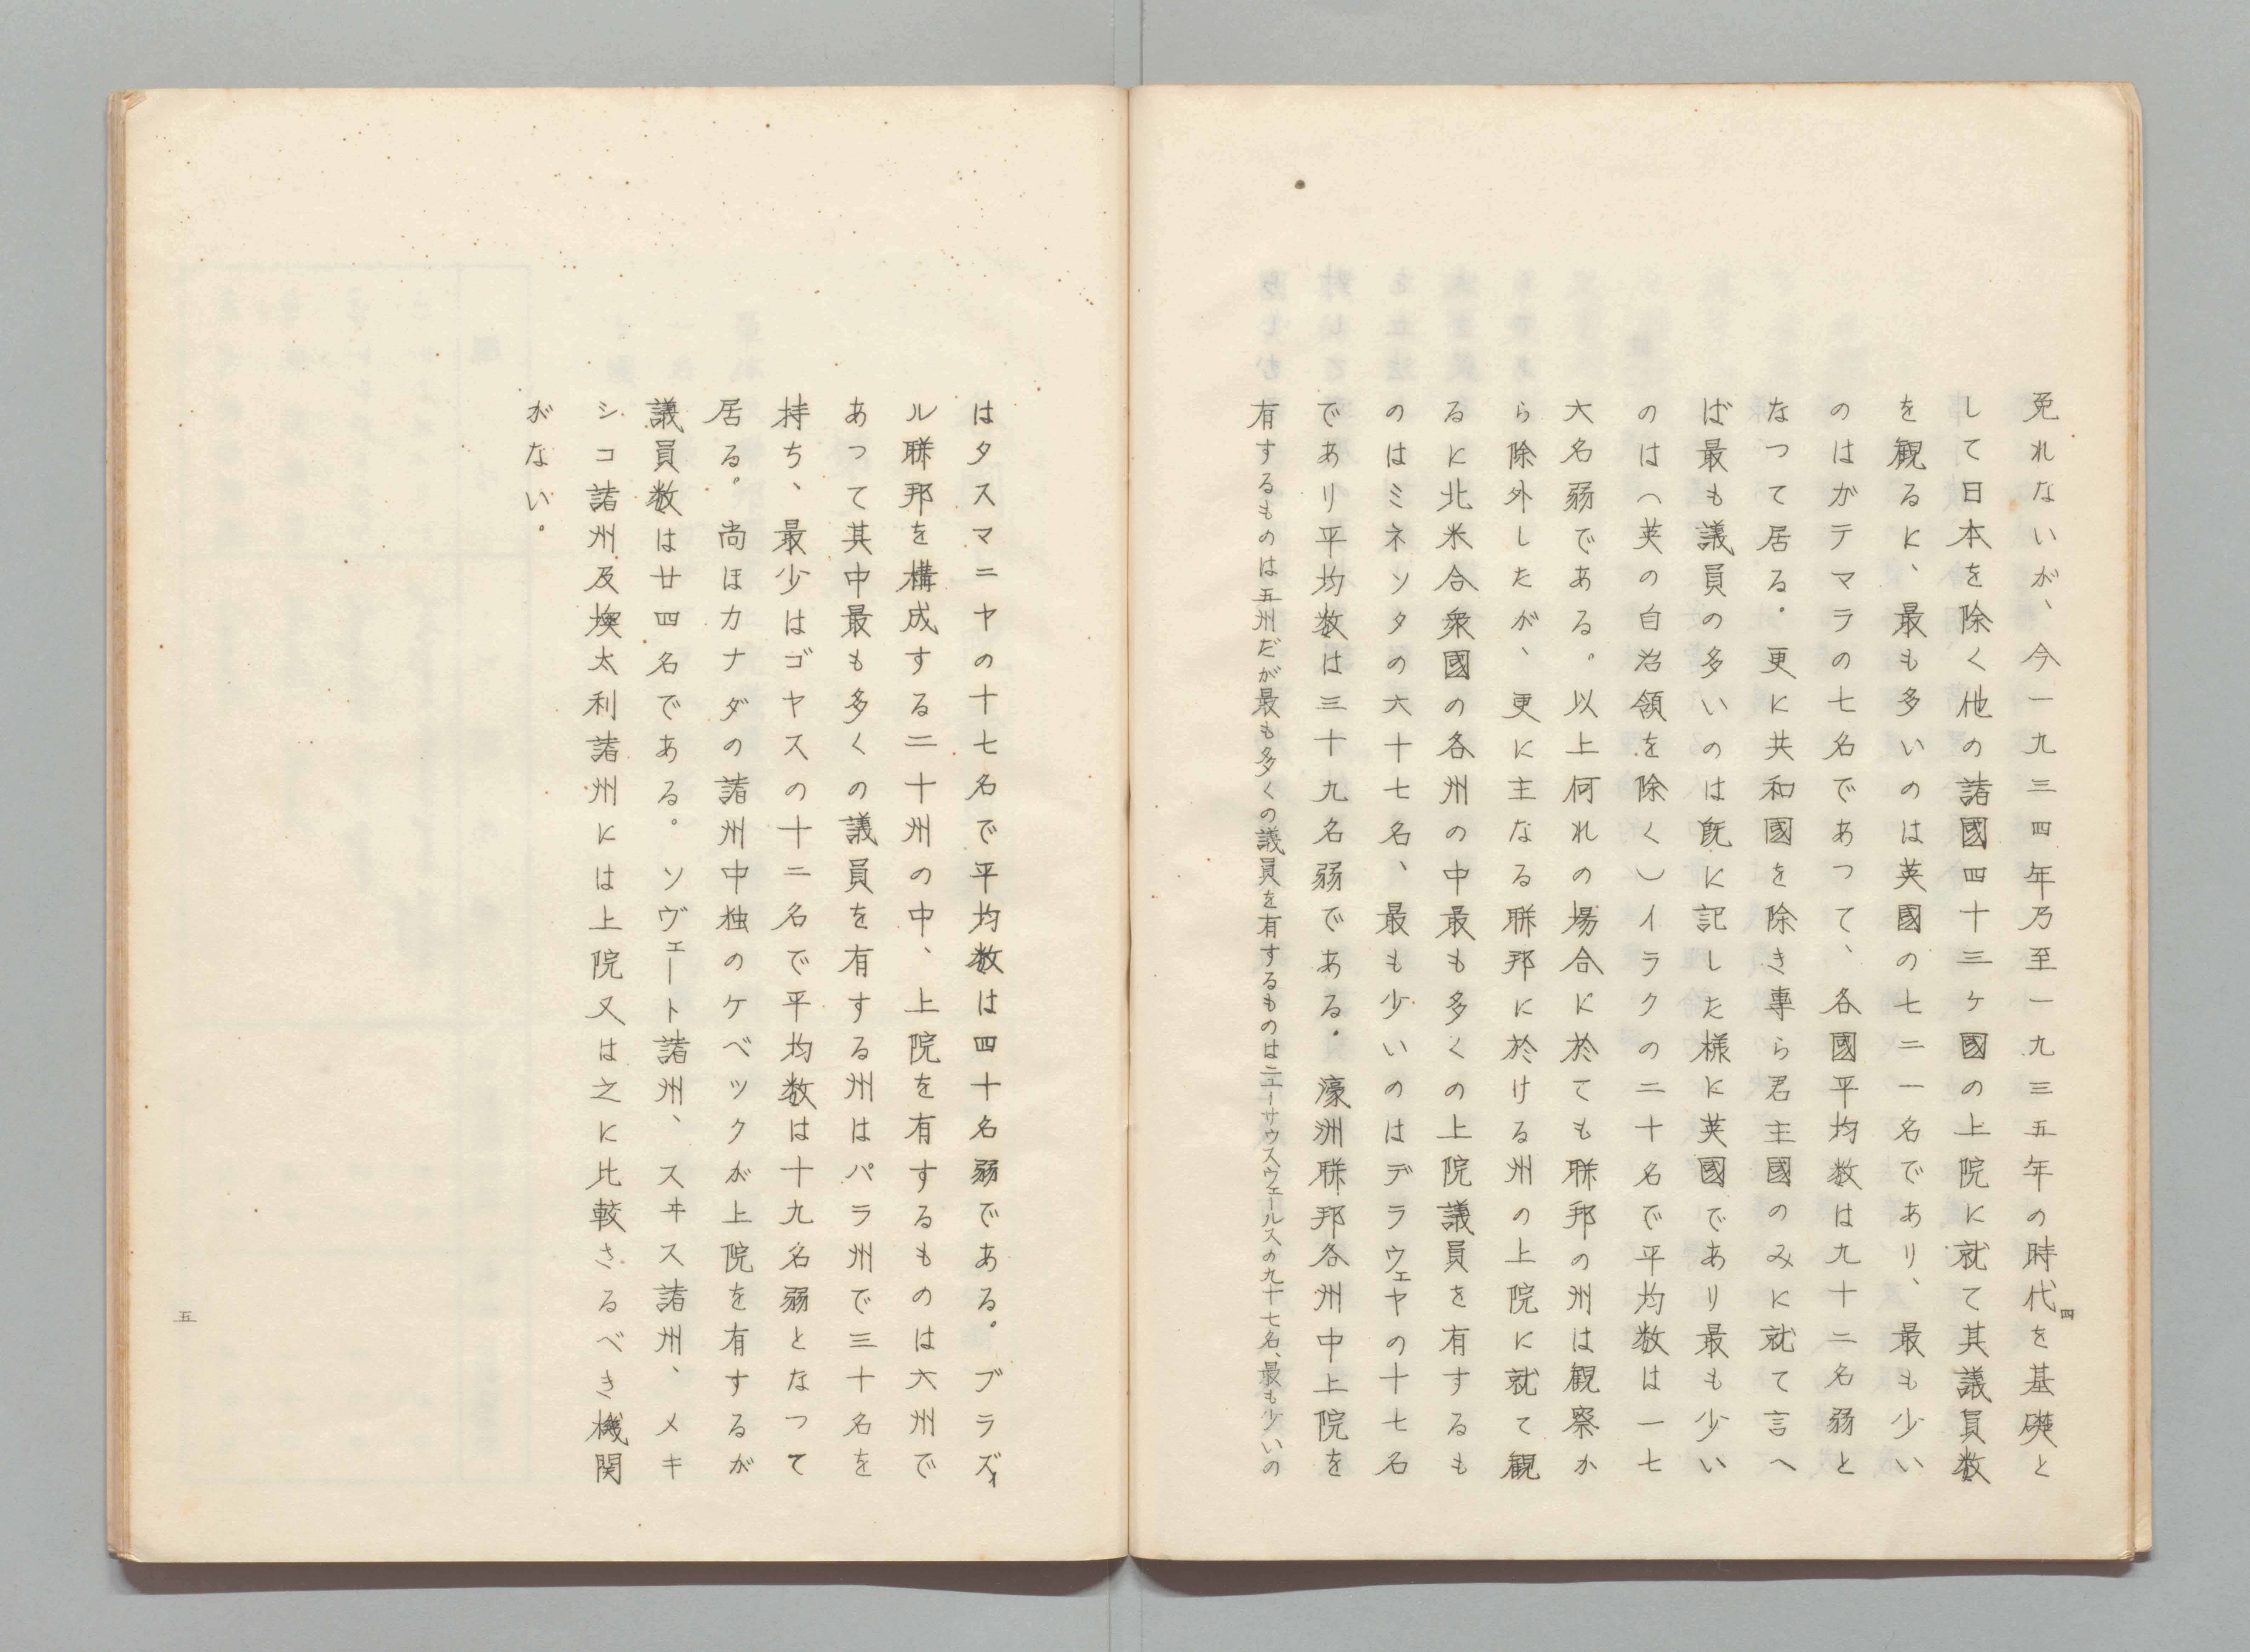 免れないが、今一九三四年乃至一九三五年の時代を基礎と
して日本を除く他の諸國四十三ヶ國の上院に就て其議員数
を観るに、最も多いのは英國の七二一名であり、最も少い
のはガテマラの七名であつて、各國平均数は九十二名弱と
なつて居る。更に共和國を除き専ら君主國のみに就て言へ
ば最も議員の多いのは既に記した様に英國であり最も少い
のは(英の自治領を除く)イラクの二十名で平均数は一七
六名弱である。以上何れの場合に於ても聯邦の州は観察か
ら除外したが、更に主なる聯邦に於ける州の上院に就て観
るに北米合衆國の各州の中最も多くの上院議員を有するも
のはミネソタの六十七名、最も少いのはデラウェヤの十七名
であり平均数は三十九名弱である。濠洲聯邦各州中上院を
有するものは五州だが最も多くの議員を有するものはニューサウスウェールスの九十七名、最も少いの
四
はタスマニヤの十七名で平均数は四十名弱である。ブラズィ
ル聯邦を構成する二十州の中、上院を有するものは六州で
あって其中最も多くの議員を有する州はパラ州で三十名を
持ち、最少はゴヤスの十二名で平均数は十九名弱となつて
居る。尚ほカナダの諸州中独のケベックが上院を有するが
議員数は廿四名である。ソヴェート諸州、スヰス諸州、メキ
シコ諸州及墺太利諸州には上院又は之に比較さるべき機関
がない。
五